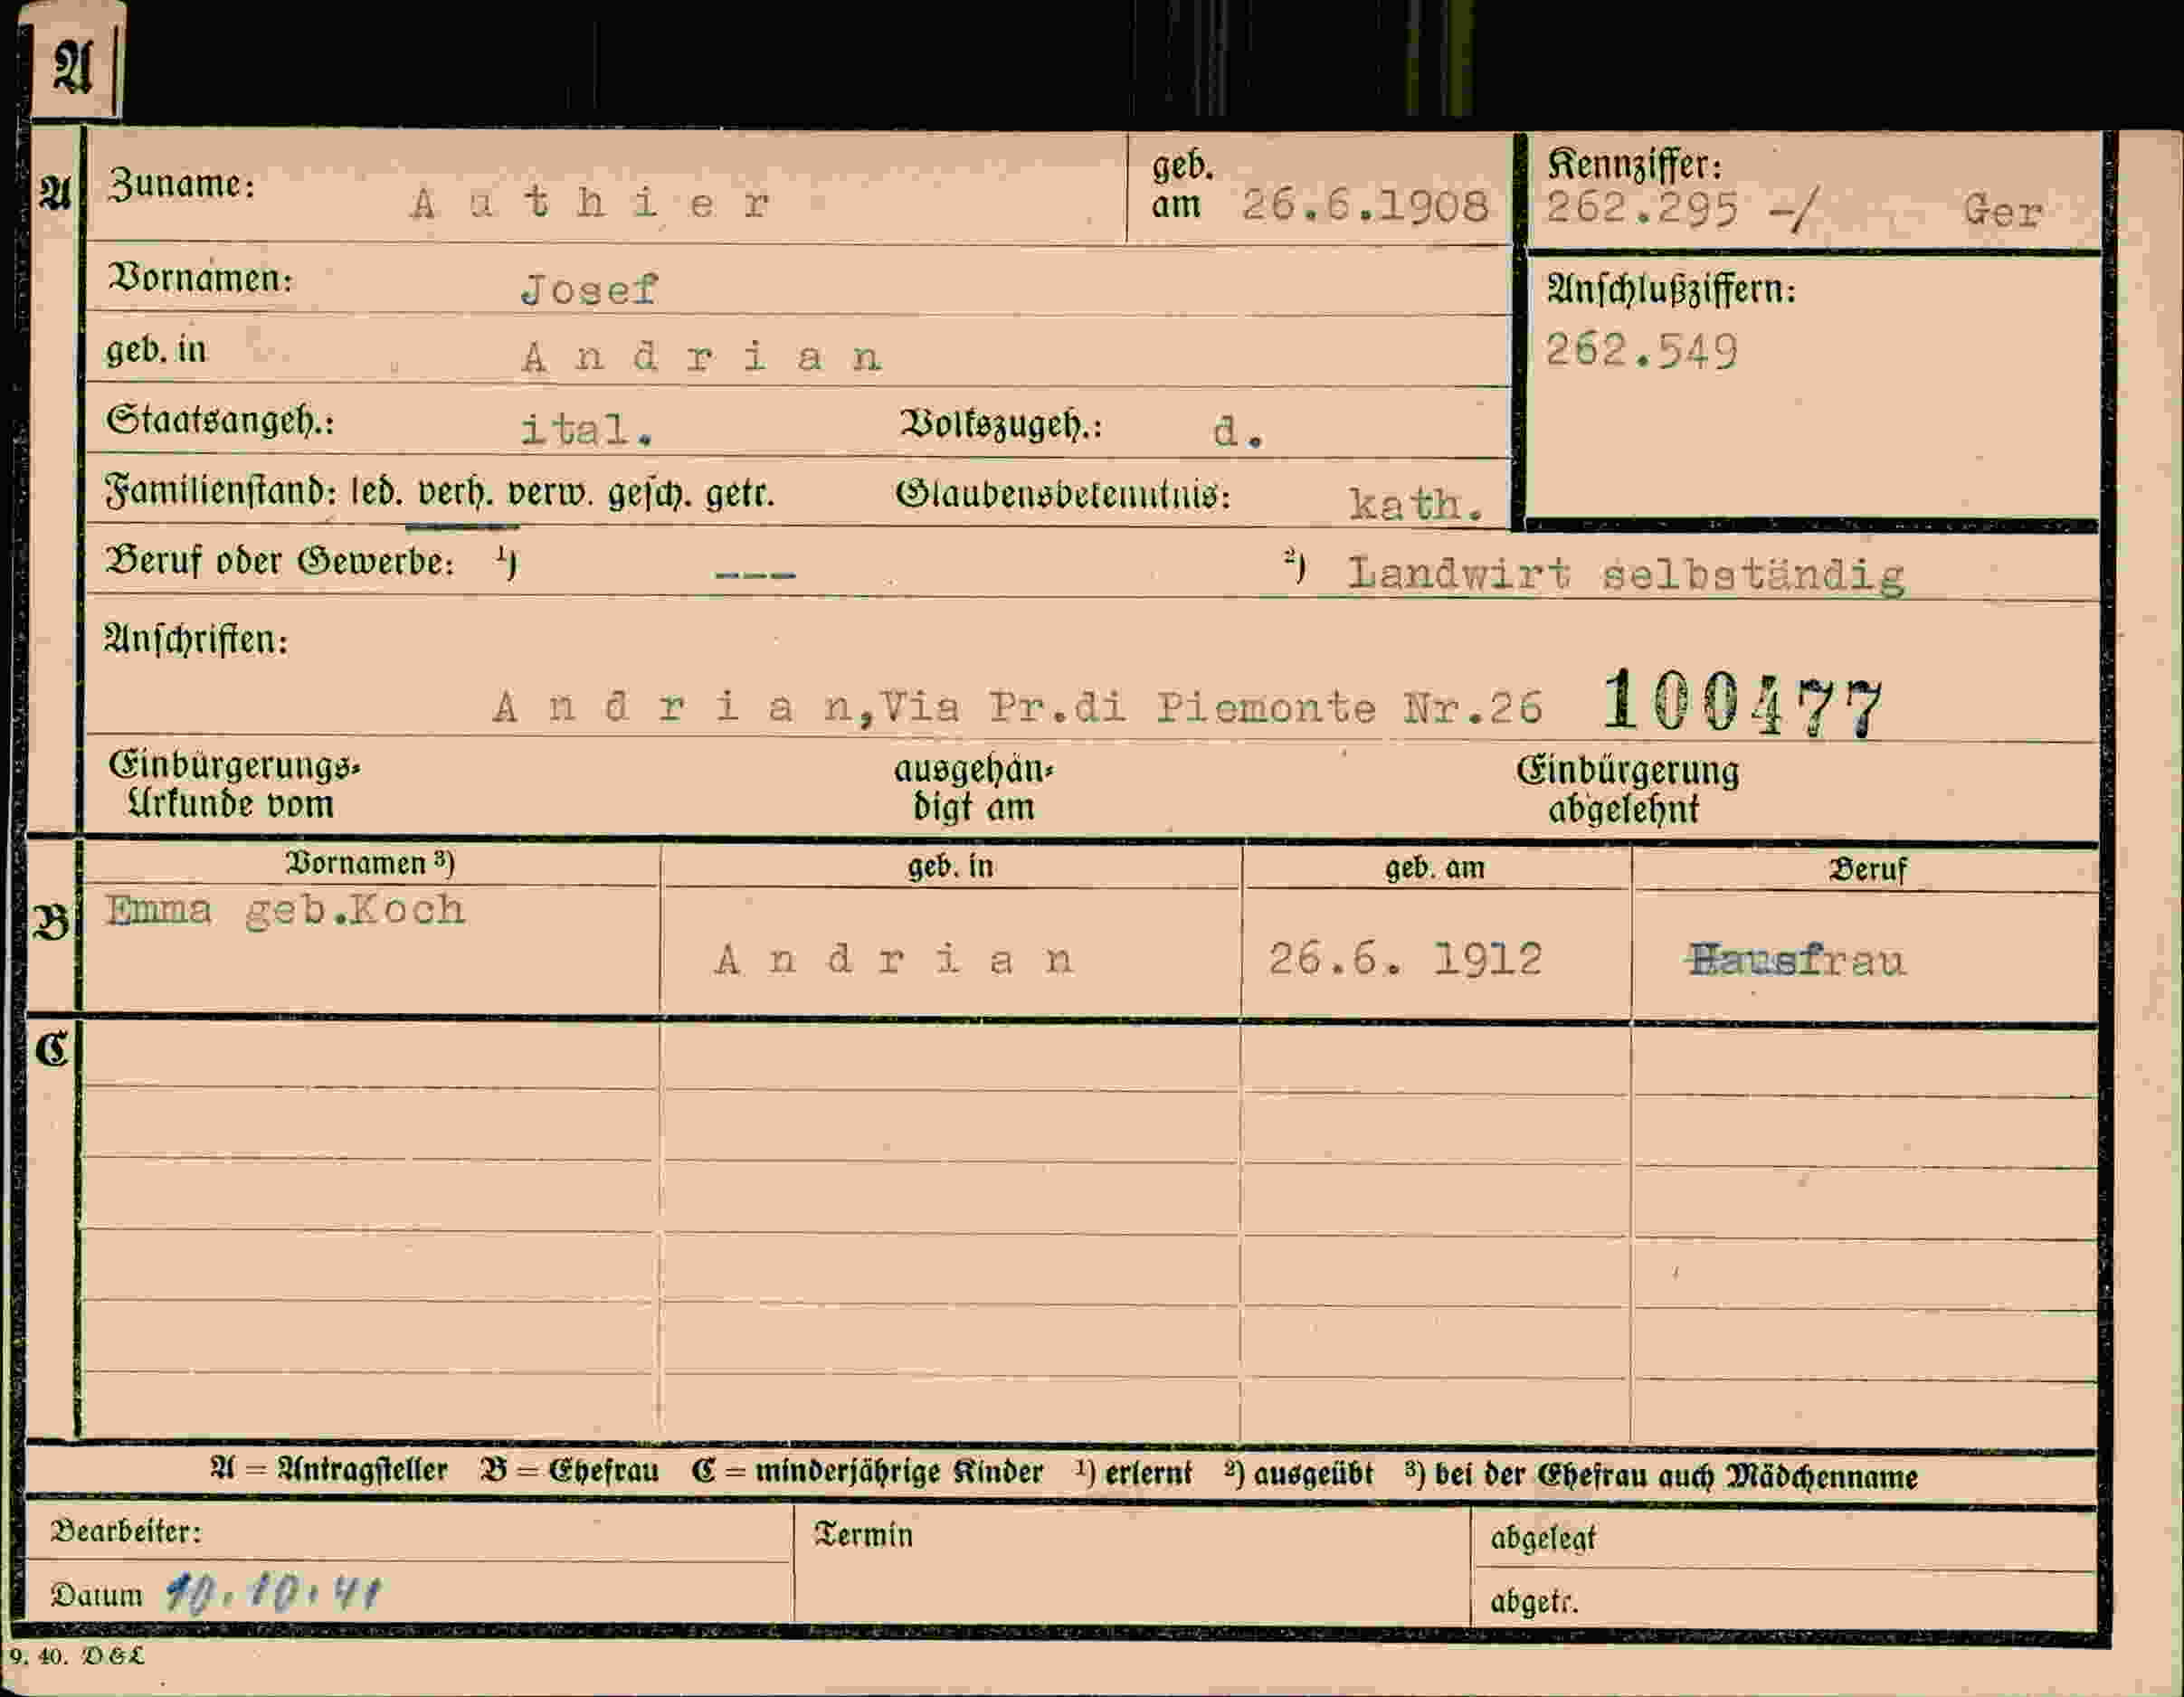 A
A Zuname: Authier geb. am 26.6.1908 Kennziffer: 262.295 -/ Ger
Vornamen: Josef Anschlußziffern:
geb. in Andrian 262.549
Staatsangeh.: ital. Volkszugeh.: d.
Familienstand: led. verh. verw. gesch. getr. Glaubensbekenntnis: kath.
Beruf oder Gewerbe: ¹) --- ²) Landwirt selbständig
Anschriften:
Andrian,Via Pr.di Piemonte Nr.26 100477
Einbürgerungs- ausgehän- Einbürgerung
Urkunde vom digt am abgelehnt
Vornamen ³) geb. in geb. am Beruf
B Emma geb.Koch
Andrian 26.6. 1912 Hausfrau
C
A = Antragsteller B = Ehefrau C = minderjährige Kinder ¹) erlernt ²) ausgeübt ³) bei der Ehefrau auch Mädchenname
Bearbeiter: Termin abgelegt
Datum 10.10.41 abgetr.
9. 40. DGL